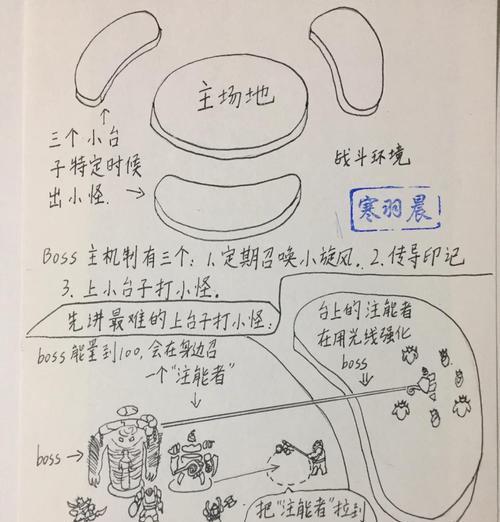 主场地
三个小台
子特定时候
出小怪.
战斗环境
寒羽晨
Boss 主机制有三个: 1.定期召唤小旋风. 2.传导印记
3. 上小台子打小怪.
先讲最难的上台子打小怪:
台上的注能者
在用光线强化
boss
boss能量到100,会在身边召
一个"注能者"
boss
把"注能者"拉到